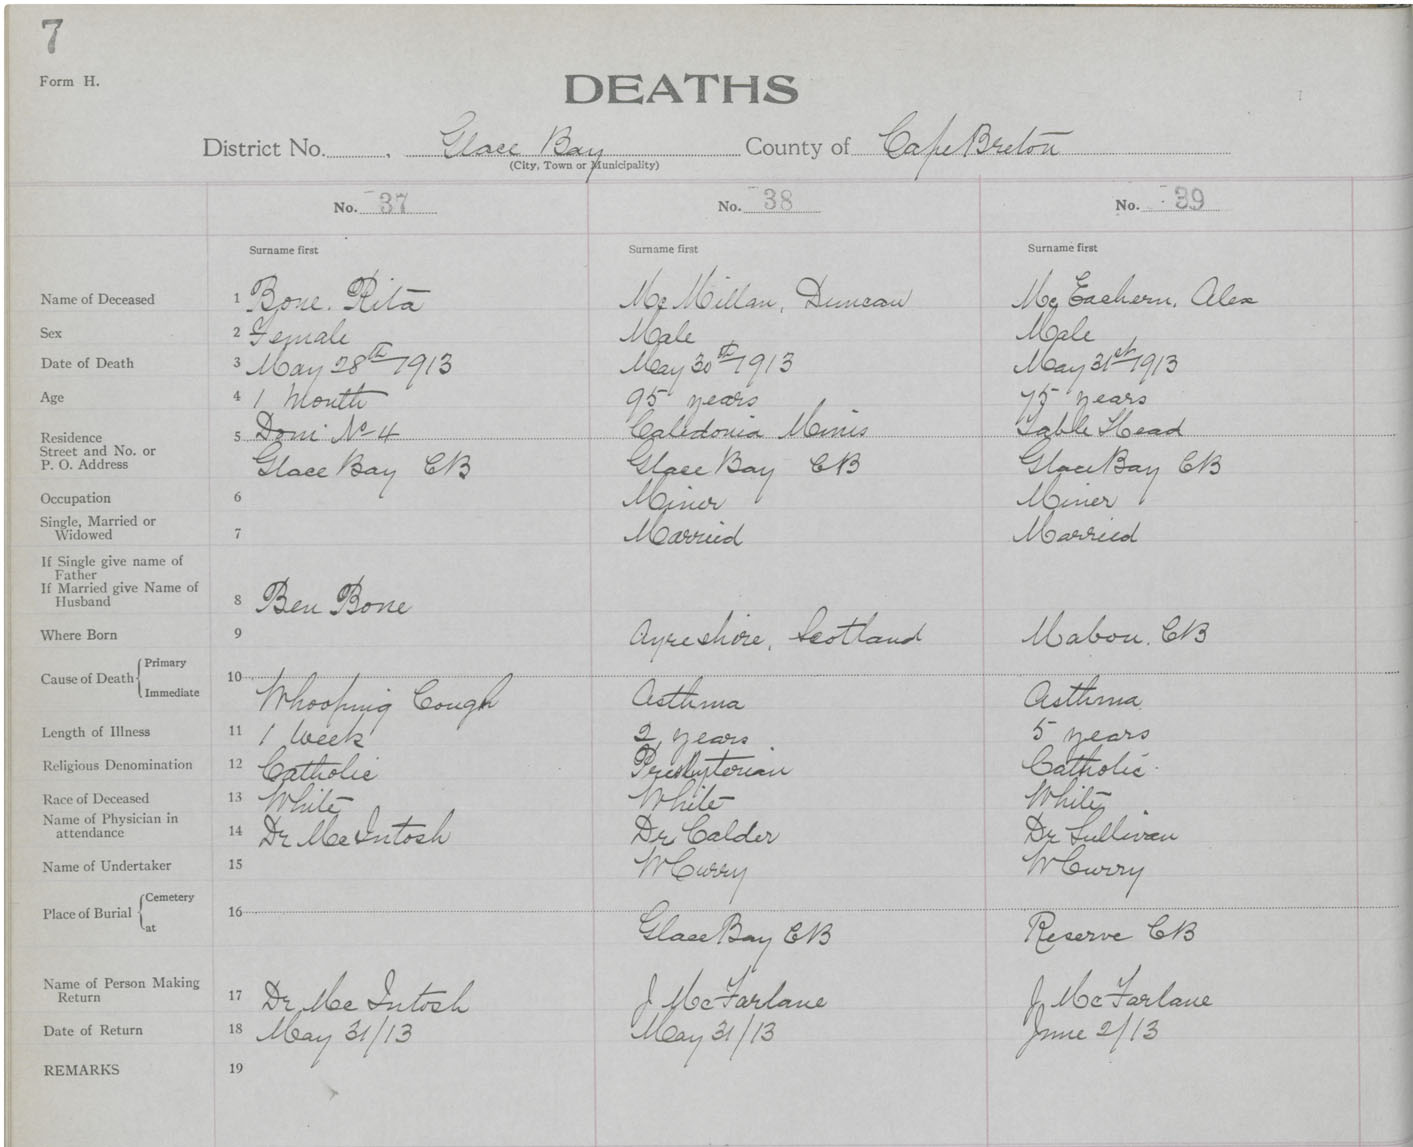 7
Form H.
DEATHS
District No. , Glace Bay County of Cape Breton
(City, Town or Municipality)
No. 37 No. 38 No. 39
Surname first Surname first Surname first
Name of Deceased 1 Bone. Rita McMillan, Duncan McEachern, Alex
Sex 2 Female Male Male
Date of Death 3 May 28th 1913 May 30th 1913 May 31st 1913
Age 4 1 Month 95 years 75 years
Residence 5 Domi No 4 Caledonia Minis Table Head
Street and No. or
P. O. Address Glace Bay CB Glace Bay CB Glace Bay CB
Occupation 6 Miner Miner
Single, Married or
Widowed 7 Married Married
If Single give name of
Father
If Married give Name of
Husband 8 Ben Bone
Where Born 9 Ayreshire, Scotland Mabou, CB
Cause of Death { Primary 10
Immediate Whooping Cough Asthma Asthma
Length of Illness 11 1 Week 2 years 5 years
Religious Denomination 12 Catholic Presbyterian Catholic
Race of Deceased 13 White White White
Name of Physician in
attendance 14 Dr MacIntosh Dr Calder Dr Sullivan
Name of Undertaker 15 W Curry W Curry
Place of Burial { Cemetery 16
at Glace Bay CB Reserve CB
Name of Person Making
Return 17 Dr MacIntosh J McFarlane J McFarlane
Date of Return 18 May 31/13 May 31/13 June 2/13
REMARKS 19